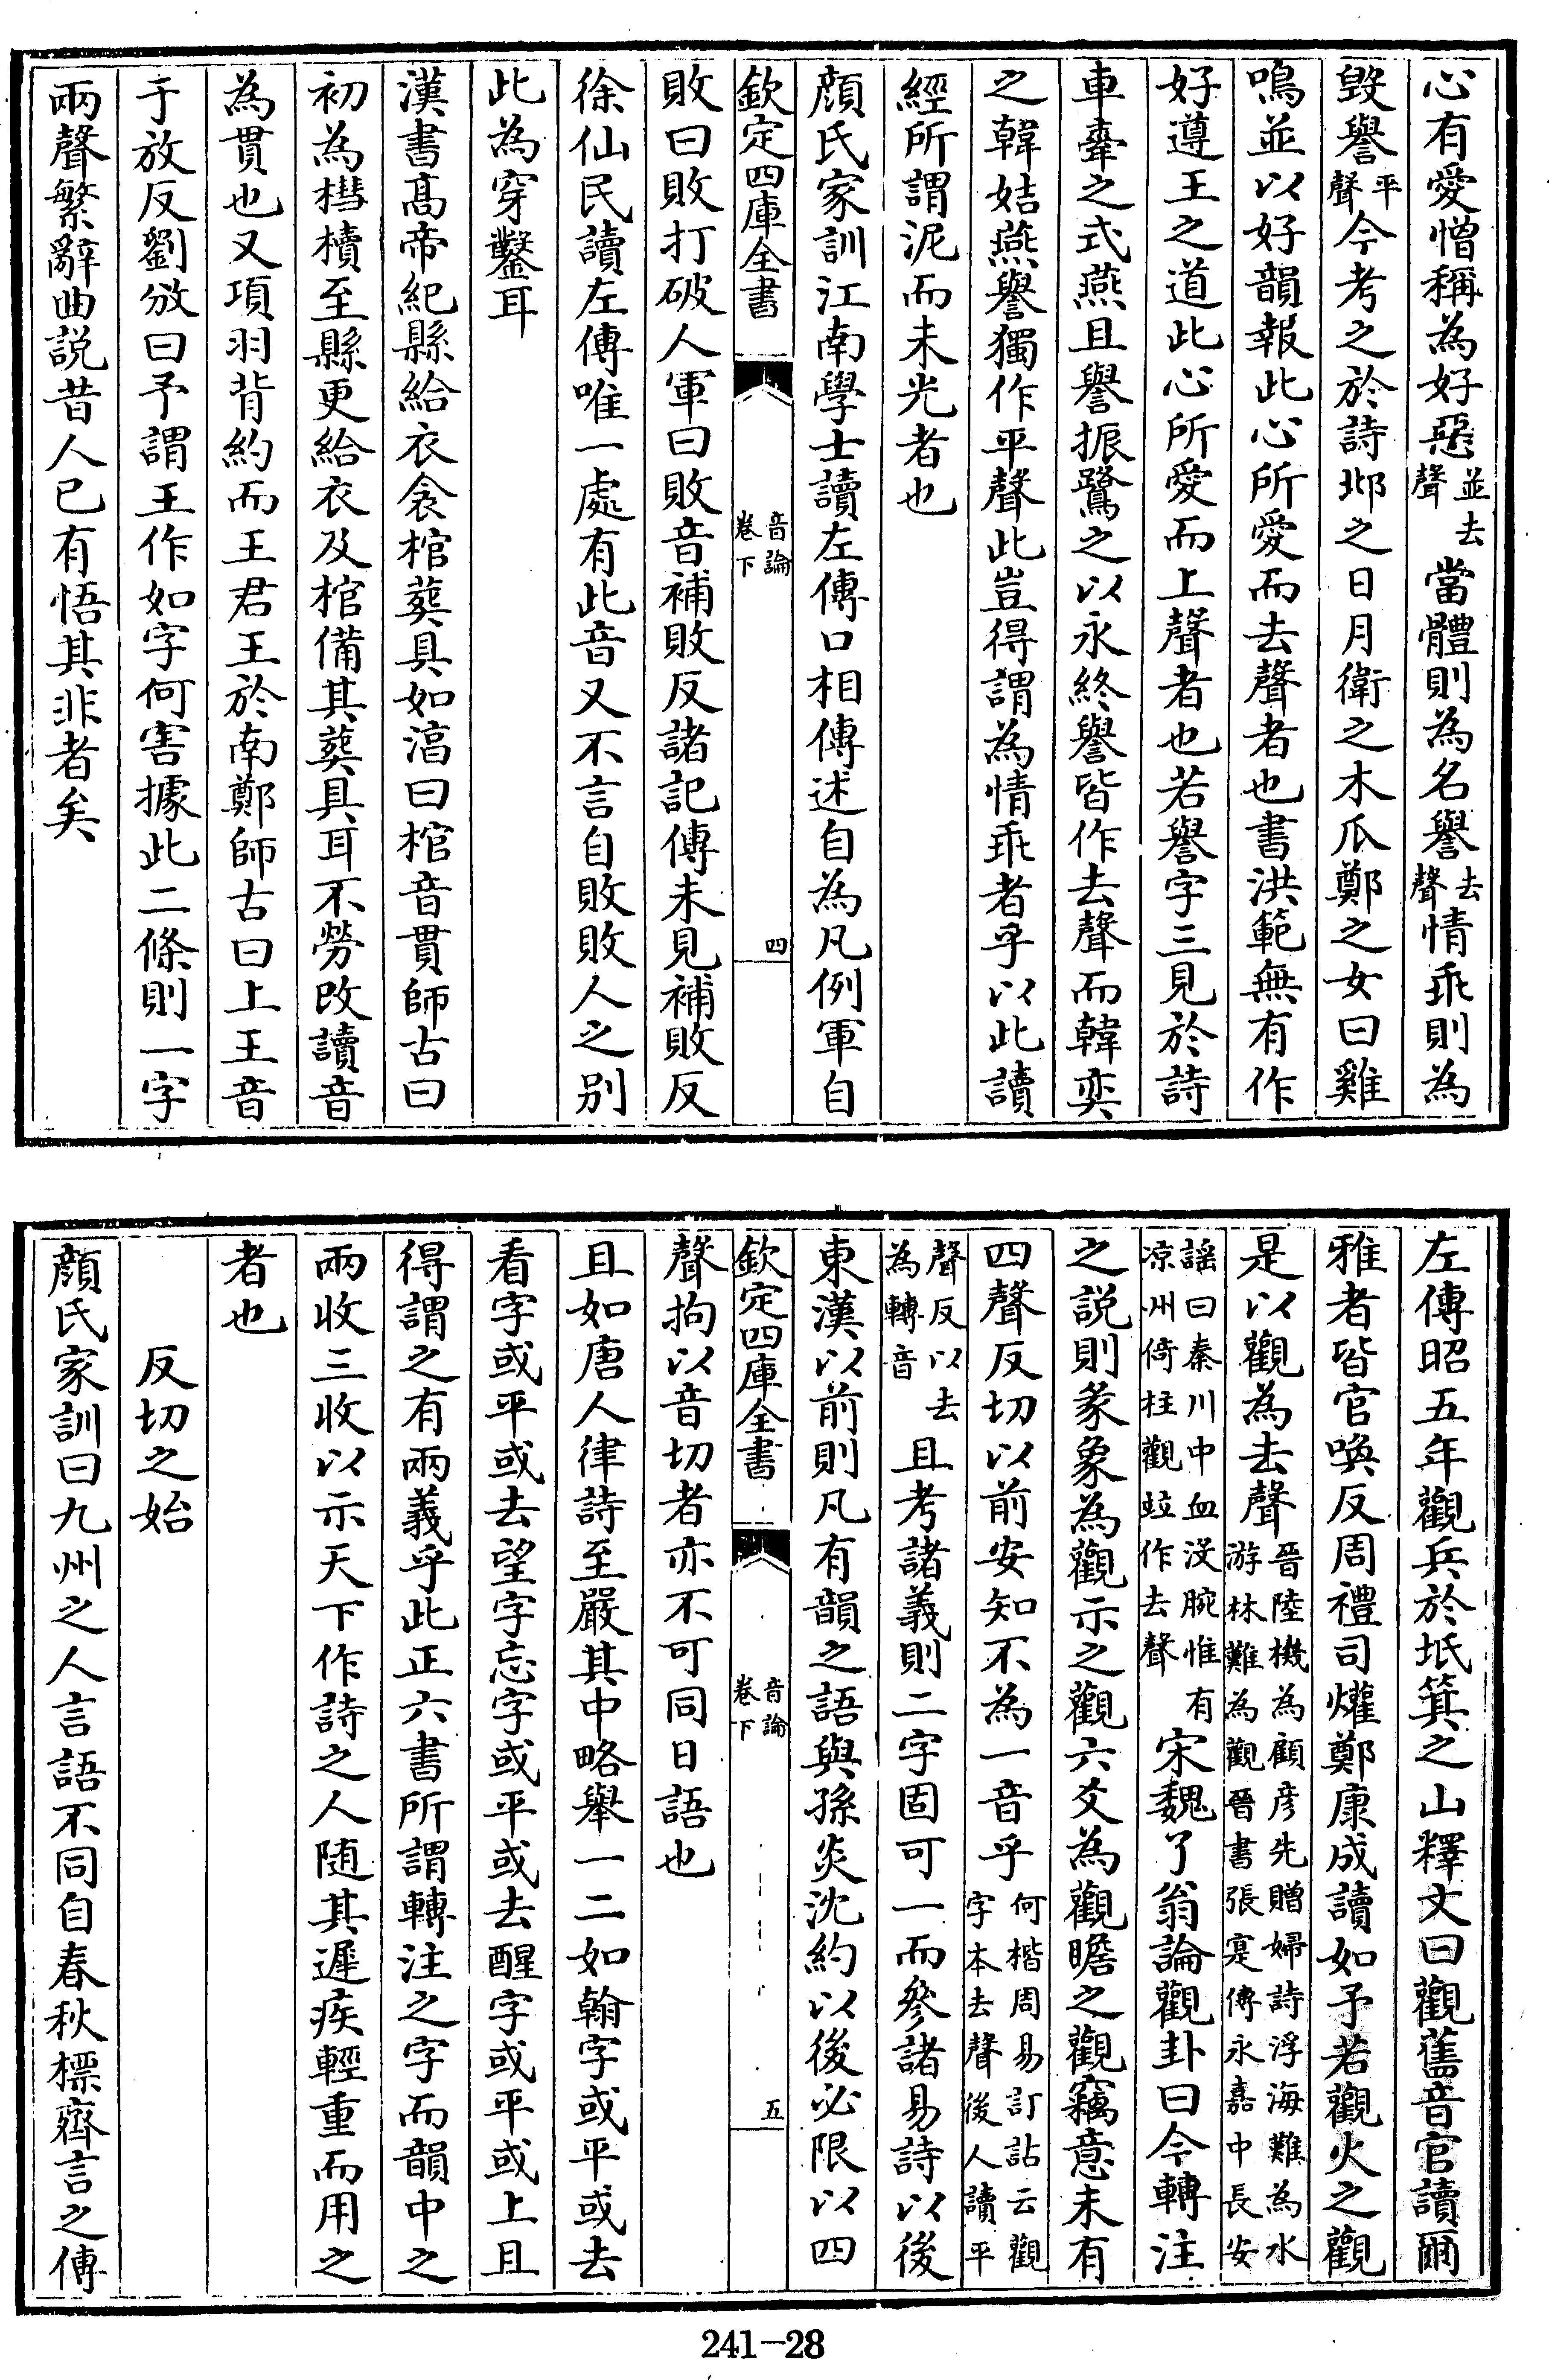 心有愛憎稱為好惡並去聲當體則為名譽去聲情乖則為
毀譽平聲今考之於詩邶之日月衛之木瓜鄭之女曰雞
鳴並以好韻報此心所愛而去聲者也書洪範無有作
好遵王之道此心所愛而上聲者也若譽字三見於詩
車舝之式燕且譽振鷺之以永終譽皆作去聲而韓奕
之韓姞燕譽獨作平聲此豈得謂為情乖者乎以此讀
經所謂泥而未光者也
顏氏家訓江南學士讀左傳口相傳述自為凡例軍自
欽定四庫全書
音論
卷下
四
敗曰敗打破人軍曰敗音補敗反諸記傳未見補敗反
徐仙民讀左傳唯一處有此音又不言自敗敗人之别
此為穿鑿耳
漢書髙帝紀縣給衣衾棺葬具如淳曰棺音貫師古曰
初為槥櫝至縣更給衣及棺備其葬具耳不勞改讀音
為貫也又項羽背約而王君王於南鄭師古曰上王音
于放反劉攽曰予謂王作如字何害據此二條則一字
兩聲繁辭曲説昔人已有悟其非者矣
左傳昭五年觀兵於坻箕之山釋文曰觀舊音官讀爾
雅者皆官喚反周禮司爟鄭康成讀如予若觀火之觀
是以觀為去聲晉陸機為顧彦先贈婦詩浮海難為水游林難為觀晉書張寔傳永嘉中長安
謡曰秦川中血没腕惟有凉州倚柱觀竝作去聲宋魏了翁論觀卦曰今轉注
之説則彖象為觀示之觀六爻為觀瞻之觀竊意未有
四聲反切以前安知不為一音乎何楷周易訂詁云觀字本去聲後人讀平
聲反以去為轉音且考諸義則二字固可一而參諸易詩以後
東漢以前則凡有韻之語與孫炎沈約以後必限以四
欽定四庫全書
音論
卷下
五
聲拘以音切者亦不可同日語也
且如唐人律詩至嚴其中略舉一二如翰字或平或去
看字或平或去望字忘字或平或去醒字或平或上且
得謂之有兩義乎此正六書所謂轉注之字而韻中之
兩收三收以示天下作詩之人随其遲疾輕重而用之
者也
反切之始
顏氏家訓曰九州之人言語不同自春秋標齊言之傳
241-28